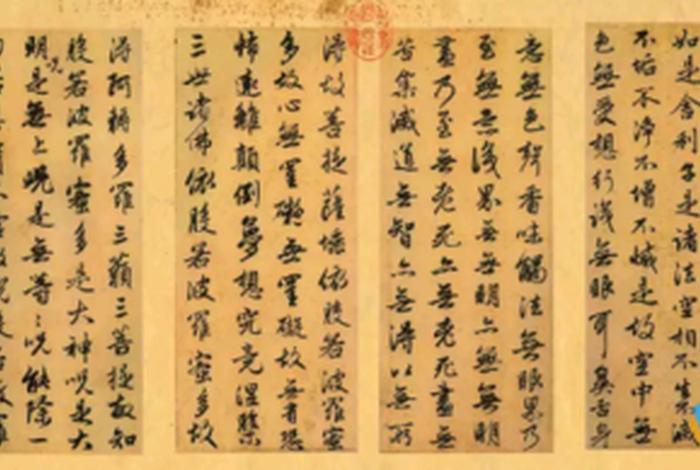 如是舍利子是諸法空相不生不滅
不垢不淨不增不減是故空中無
色無受想行識無眼耳鼻舌身
意無色聲香味觸法無眼界乃
至無意識界無無明亦無無明
盡乃至無老死亦無老死盡無
苦集滅道無智亦無得以無所
得故菩提薩埵依般若波羅蜜
多故心無罣礙無罣礙故無有恐
怖遠離顛倒夢想究竟涅槃
三世諸佛依般若波羅蜜多故
得阿耨多羅三藐三菩提故知
般若波羅蜜多是大神呪是大
明呪是無上呪是無等〻呪能除一